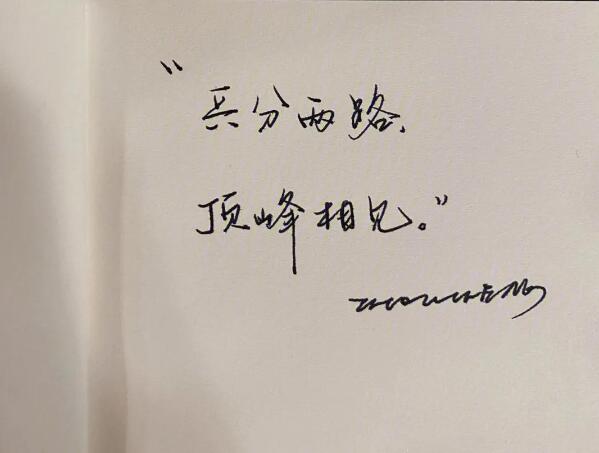 “兵分两路,
顶峰相见。”